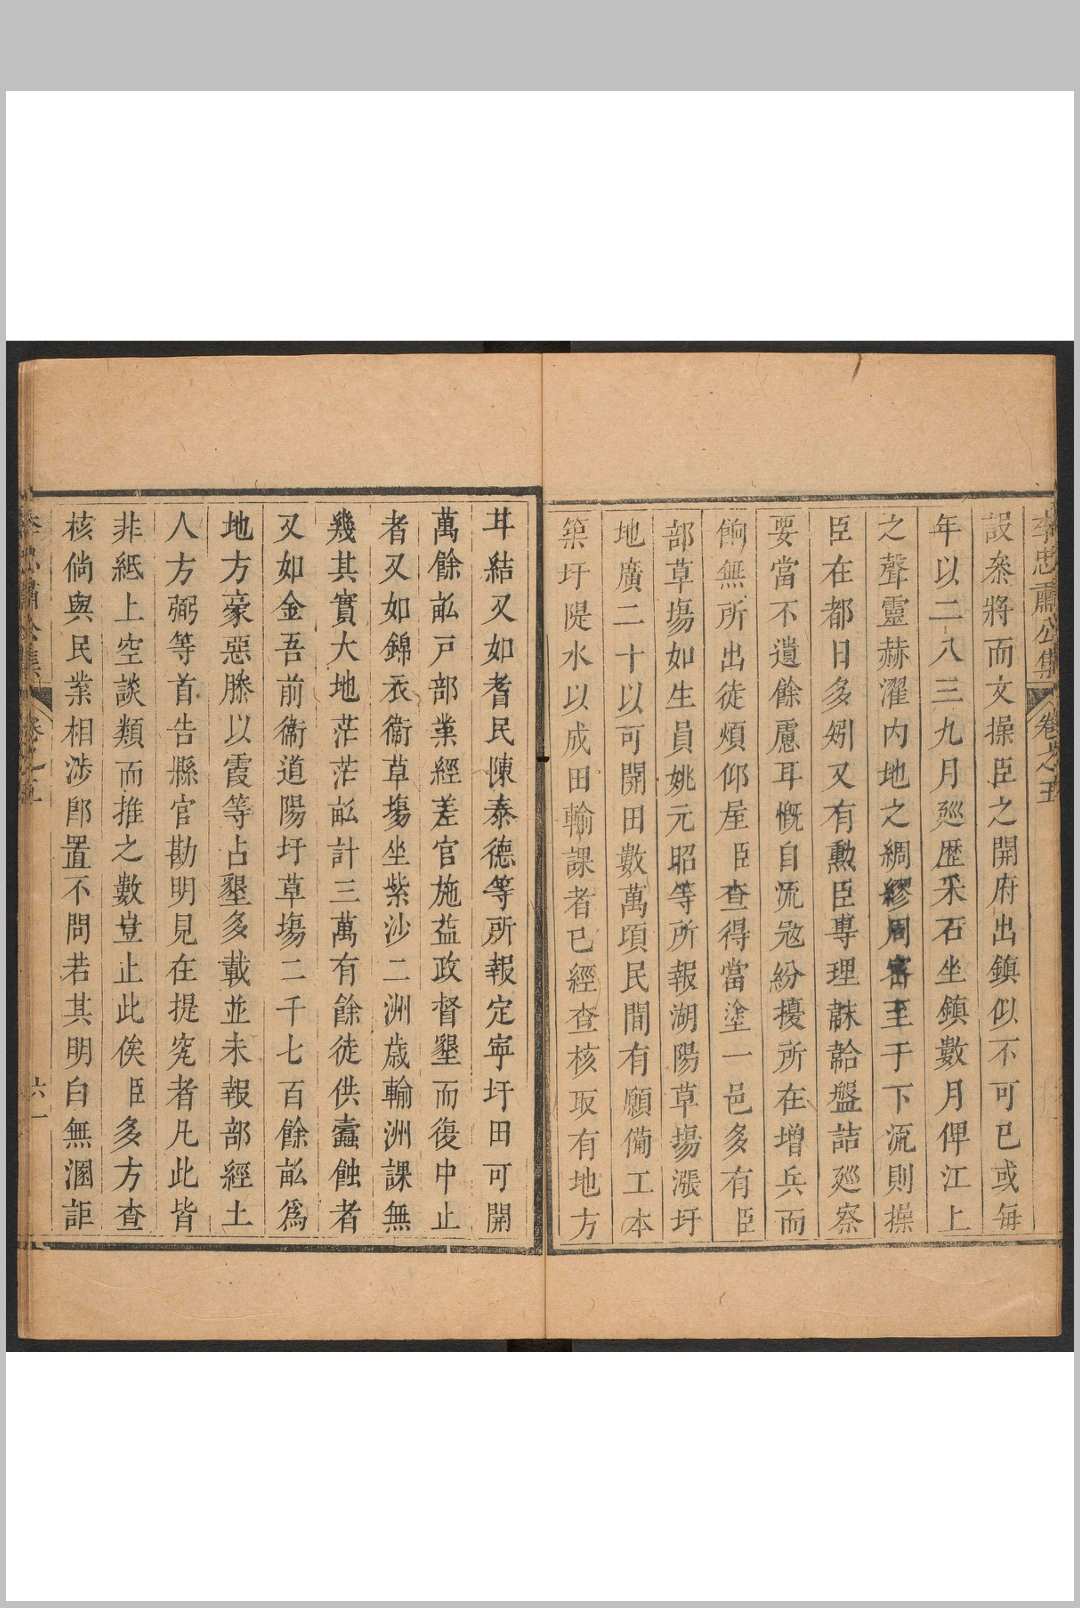 李忠肅公集 卷之五
設叅將而文操臣之開府出鎮似不可已或每
年以二八三九月廵歷采石坐鎮數月俾江上
之聲靈赫濯内地之綢繆周密至于下流則操
臣在都日多矧又有勲臣專理誅詰盤詰廵察
要當不遺餘慮耳慨自流寇紛擾所在增兵而
餉無所出徒煩仰屋臣查得當塗一邑多有臣
部草塲如生員姚元昭等所報湖陽草塲漲圩
地廣二十以可開田數萬頃民間有願備工本
築圩隄水以成田輸課者已經查核取有地方
甘結又如耆民陳泰德等所報定寧圩田可開
萬餘畝戸部業經差官施葢政督墾而復中止
者又如錦衣衞草塲坐紫沙二洲歲輸洲課無
幾其實大地茫茫畝計三萬有餘徒供蠧蝕者
又如金吾前衞道陽圩草塲二千七百餘畝爲
地方豪惡滕以霞等占墾多載並未報部經土
人方弼等首告縣官勘明見在提究者凡此皆
非紙上空談類而推之數豈止此俟臣多方查
核倘與民業相涉卽置不問若其明白無溷詎
李忠肅公集 卷之五 六一